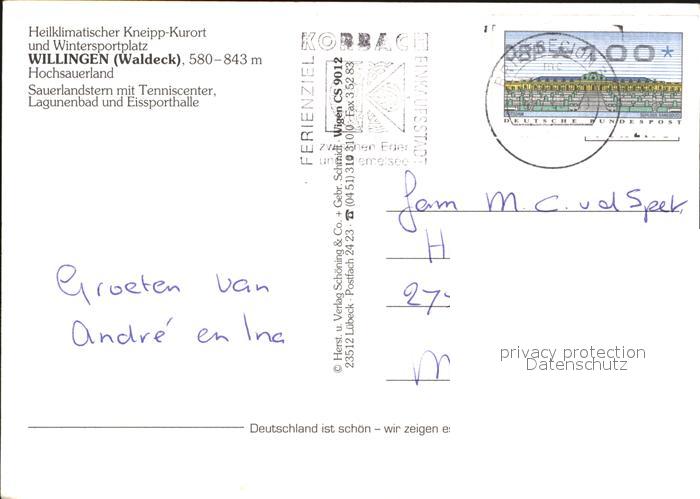 Heilklimatischer Kneipp-Kurort
und Wintersportplatz
WILLINGEN (Waldeck), 580–843 m
Hochsauerland
Sauerlandstern mit Tenniscenter,
Lagunenbad und Eissporthalle
KORBACH
FERIENZIEL
EINKAUFSSTADT
zwischen Eder
und Diemelsee
100*
DEUTSCHE BUNDESPOST
© Herst. u. Verlag Schöning & Co. + Gebr. Schmidt · Wigen CS 9012
23512 Lübeck · Postfach 24 23 · ☎ (04 51) 310 310 0 · Fax 3 52 83
Fam M. C. v d Spek,
H
27
M
Groeten van
André en Ina
privacy protection
Datenschutz
Deutschland ist schön – wir zeigen es